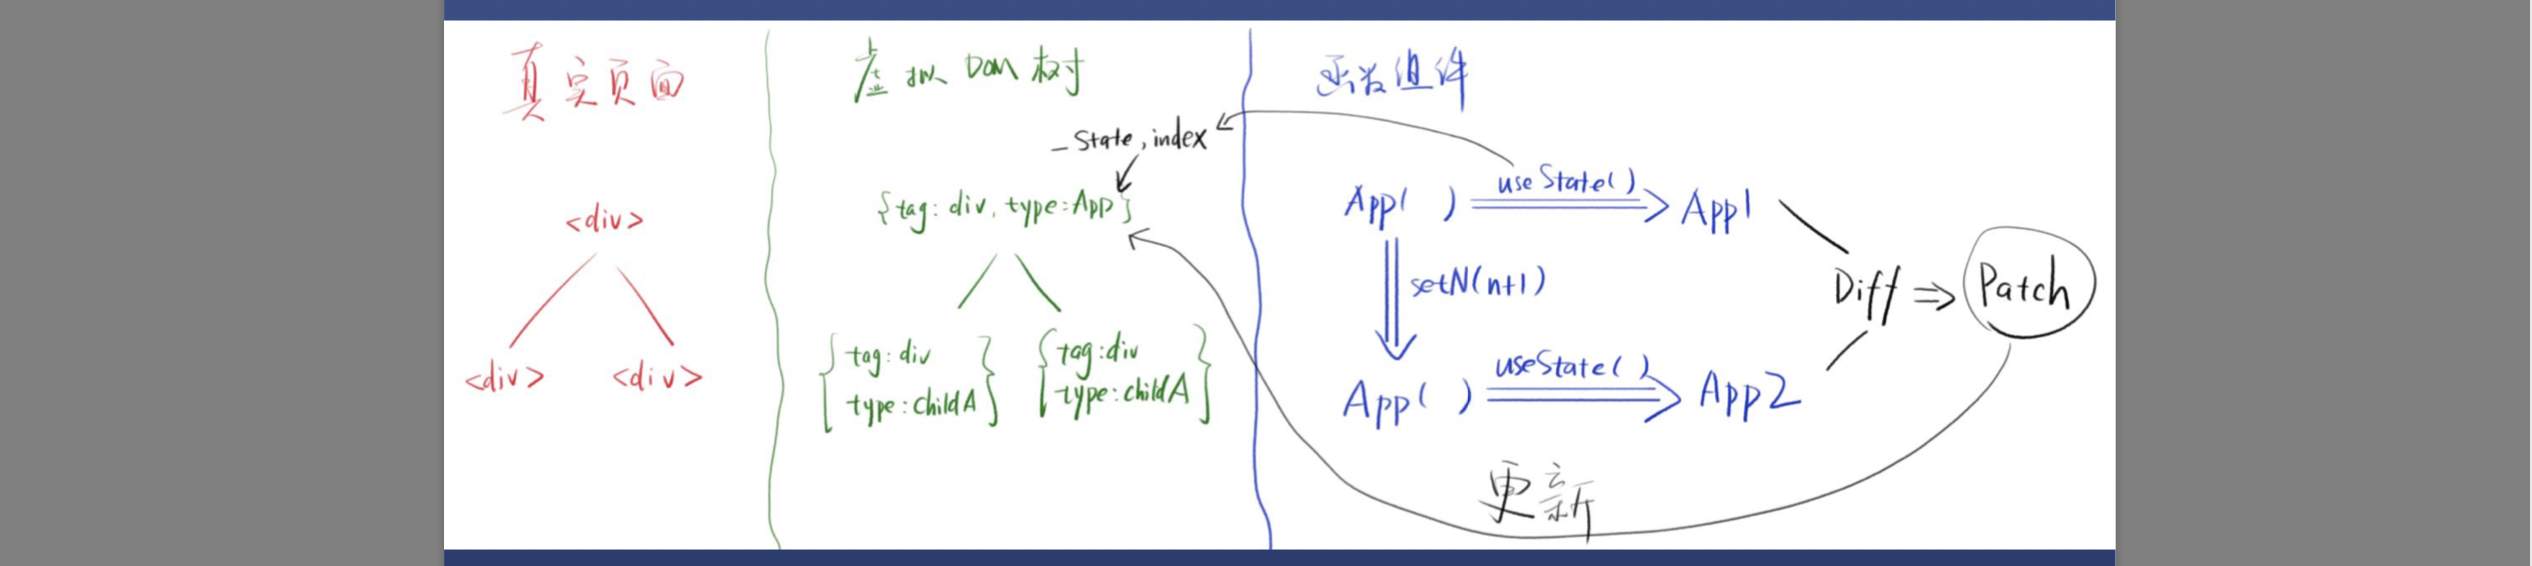 真实页面
<div>
<div> <div>
虚拟 DOM 树
_state, index
{tag: div, type:App}
{tag:div
type:childA}
{tag:div
type:childA}
函数组件
App( ) useState() App1
setN(n+1)
App( ) useState( ) App2
Diff ⇒ Patch
更新